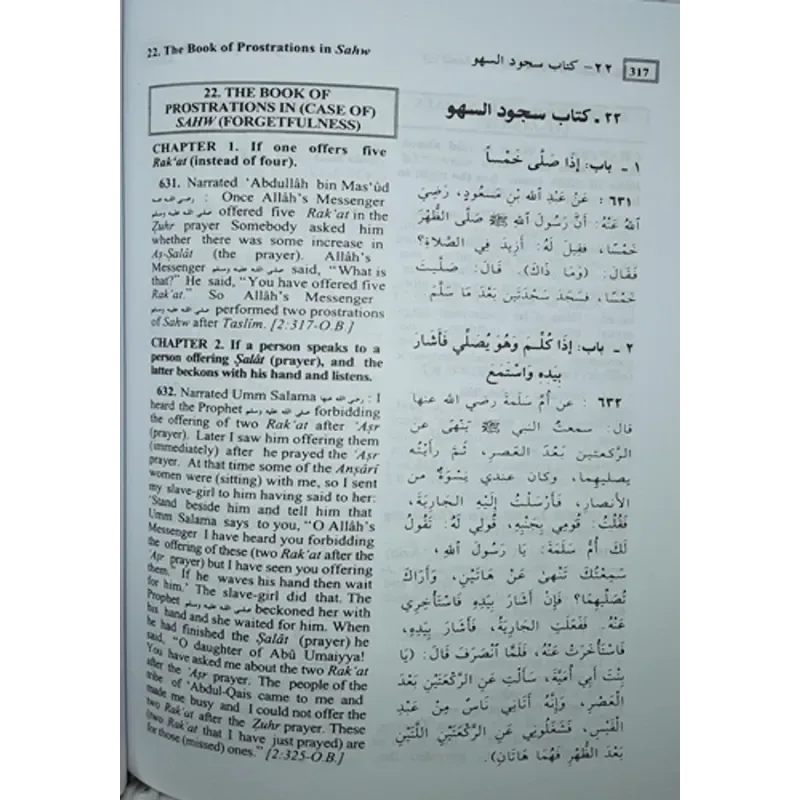 22. The Book of Prostrations in Sahw
٢٢- كتاب سجود السهو
317
22. THE BOOK OF
PROSTRATIONS IN (CASE OF)
SAHW (FORGETFULNESS)
CHAPTER 1. If one offers five
Rak'at (instead of four).
631. Narrated 'Abdullâh bin Mas'ûd
رضي الله عنه : Once Allâh's Messenger
صلى الله عليه وسلم offered five Rak'at in the
Ẓuhr prayer Somebody asked him
whether there was some increase in
Aṣ-Ṣalât (the prayer). Allâh's
Messenger صلى الله عليه وسلم said, "What is
that?" He said, "You have offered five
Rak'at." So Allâh's Messenger
صلى الله عليه وسلم performed two prostrations
of Sahw after Taslîm. [2:317-O.B.]
CHAPTER 2. If a person speaks to a
person offering Ṣalât (prayer), and the
latter beckons with his hand and listens.
632. Narrated Umm Salama رضي الله عنها : I
heard the Prophet صلى الله عليه وسلم forbidding
the offering of two Rak'at after 'Aṣr
(prayer). Later I saw him offering them
(immediately) after he prayed the 'Aṣr
prayer. At that time some of the Anṣârî
women were (sitting) with me, so I sent
my slave-girl to him having said to her:
'Stand beside him and tell him that
Umm Salama says to you, "O Allâh's
Messenger I have heard you forbidding
the offering of these (two Rak'at after the
'Aṣr prayer) but I have seen you offering
them." If he waves his hand then wait
for him.' The slave-girl did that. The
Prophet صلى الله عليه وسلم beckoned her with
his hand and she waited for him. When
he had finished the Ṣalât (prayer) he
said, "O daughter of Abû Umaiyya!
You have asked me about the two Rak'at
after the 'Aṣr prayer. The people of the
tribe of 'Abdul-Qais came to me and
made me busy and I could not offer the
two Rak'at after the Ẓuhr prayer. These
(two Rak'at that I have just prayed) are
for those (missed) ones." [2:325-O.B.]
٢٢ ـ كتاب سجود السهو
١ ـ باب: إِذَا صَلَّى خَمْساً
٦٣١ : عَنْ عَبْدِ اللهِ بْنِ مَسْعُودٍ، رَضِيَ
اللهُ عَنْهُ: أَنَّ رَسُولَ اللهِ ﷺ صَلَّى الظُّهْرَ
خَمْسًا، فَقِيلَ لَهُ: أَزِيدَ فِي الصَّلاةِ؟
فَقَالَ: (وَمَا ذَاكَ). قَالَ: صَلَّيْتَ
خَمْسًا، فَسَجَدَ سَجْدَتَيْنِ بَعْدَ مَا سَلَّمَ.
٢ ـ باب: إِذَا كُلِّمَ وَهُوَ يُصَلِّي فَأَشَارَ
بِيَدِهِ وَاسْتَمَعَ
٦٣٢ : عن أُمِّ سَلَمَةَ رضي الله عنها
قال: سمعتُ النبي ﷺ يَنْهَى عن
الرَّكعتين بَعْدَ العصر، ثُمَّ رأيتُه
يصليهما، وكان عندي نِسْوَةٌ من
الأنصار، فَأَرْسَلْتُ إِلَيْهِ الجَارِيَةَ،
فَقُلْتُ: قُومِي بِجَنْبِهِ، قُولِي لَهُ: تَقُولُ
لَكَ أُمُّ سَلَمَةَ: يَا رَسُولَ اللهِ،
سَمِعْتُكَ تَنْهىٰ عَنْ هَاتَيْنِ، وَأَرَاكَ
تُصَلِّيهِمَا؟ فَإِنْ أَشَارَ بِيَدِهِ فَاسْتَأْخِرِي
عَنْهُ. فَفَعَلَتِ الجَارِيَةُ، فَأَشَارَ بِيَدِهِ،
فَاسْتَأْخَرَتْ عَنْهُ، فَلَمَّا انْصَرَفَ قَالَ: (يَا
بِنْتَ أَبِي أُمَيَّةَ، سَأَلْتِ عَنِ الرَّكْعَتَيْنِ بَعْدَ
الْعَصْرِ، وَإِنَّهُ أَتَانِي نَاسٌ مِنْ عَبْدِ
الْقَيْسِ، فَشَغَلُونِي عَنِ الرَّكْعَتَيْنِ اللَّتَيْنِ
بَعْدَ الظُّهْرِ فَهُمَا هَاتَانِ).